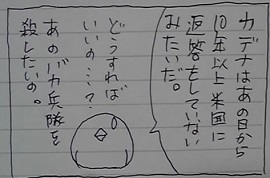 カデナはあの日から
10年以上米国に
返答をしていない
みたいだ。
どうすれば
いいの…?
あのバカ兵隊を
殺したいの。